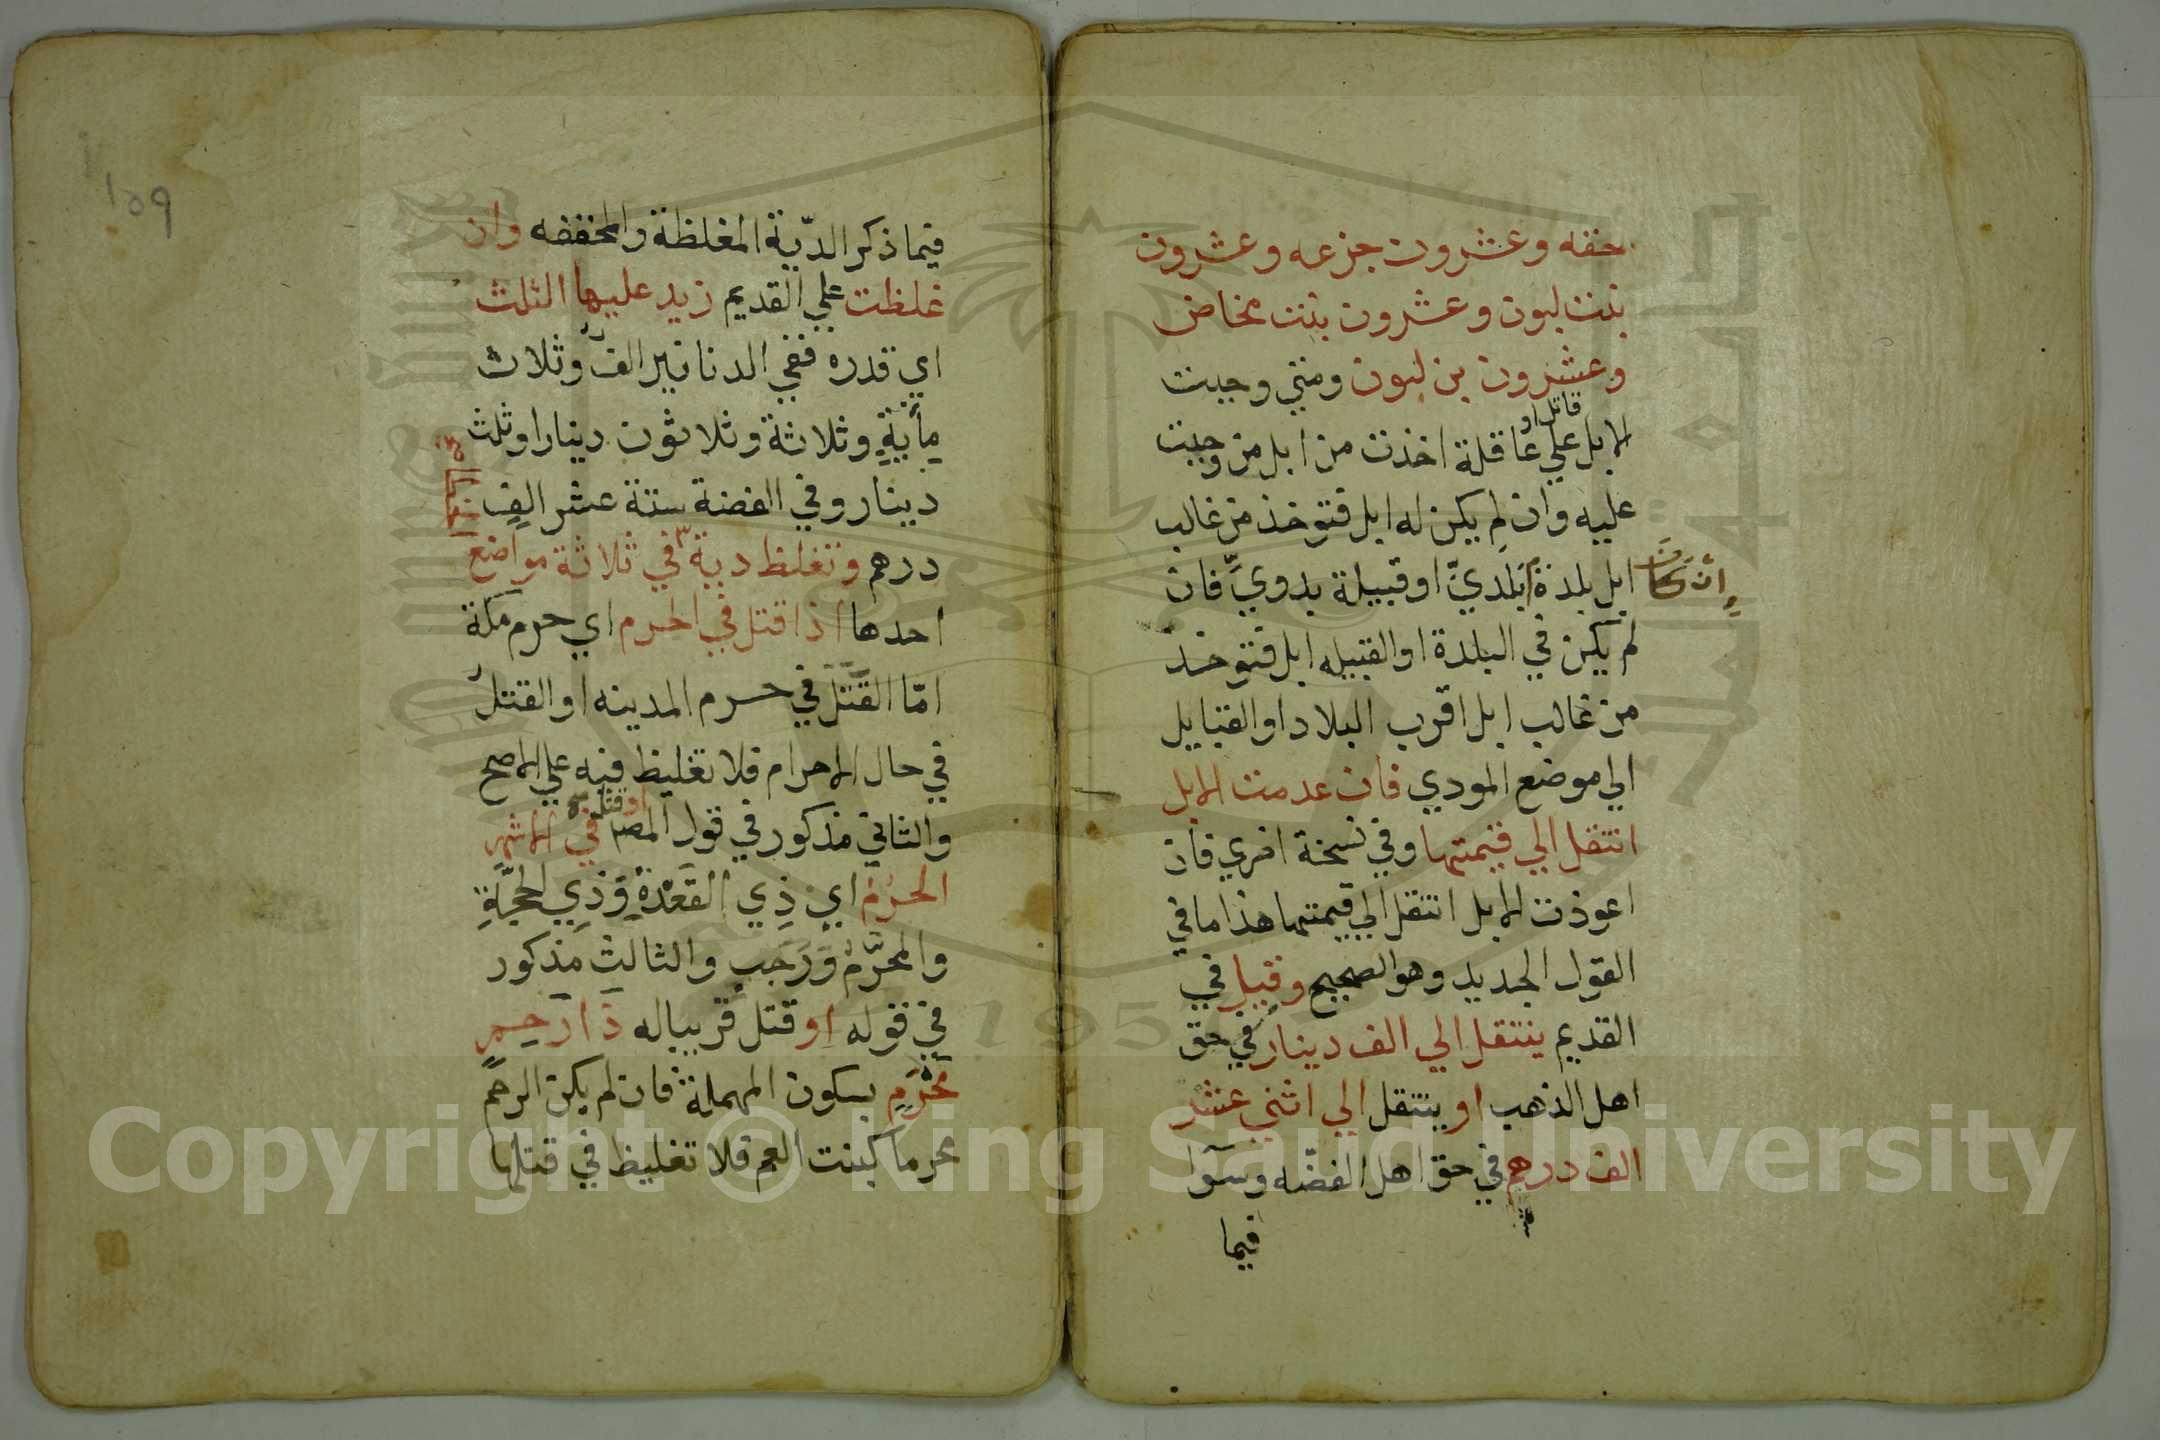 حقه وعشرون جزعه وعشرون
بنت لبون وعشرون بنت مخاض
وعشرون بن لبون ومتي وجبت
قاتل او
الابل علي عاقلة اخذت من ابل من وجبت
عليه وان لم يكن له ابل فتوخذ من غالب
ابل بلدة بلديّ او قبيلة بدويّ فان
اِن كان
لم يكن في البلدة او القبيله ابل فتوخذ
من غالب ابل اقرب البلاد او القبايل
الي موضع المودي فان عدمت الابل
انتقل الي قيمتها وفي نسخة اخري فان
اعوذت الابل انتقل الي قيمتها هذا ما في
القول الجديد وهو الصحيح وقيل في
القديم ينتقل الي الف دينار في حق
اهل الذهب او ينتقل الي اثني عشر
الف درهم في حق اهل الفضّه وسوآ
فيما
١٥٩
فيما ذكر الديّة المغلظة والمخففه وان
غلظت علي القديم زيد عليها الثلث
اي قدره ففي الدنانير الفٌ وثلاث
مِأيةٍ وثلاثة وثلاثون دينارا وثلث
دينار وفي الفضة ستة عشر الف
درهم وتغلظ دية في ثلاثة مواضع
احدها اذا قتل في الحرم اي حرم مكة
امّا القَتل في حرم المدينه او القتل
في حال الاحرام فلا تغليظ فيه علي الاصح
او قتل
والثاني مذكور في قول المصـ في الاشهر
الحرم اي ذِي القَعْدةِ وَذِي الحجَّةِ
والمحرَّم وَرَجَب والثالث مذكور
في قوله او قتل قريبا له ذَا رَحِمٍ
مَحْرَمٍ بسكون المهملة فان لم يكن الرحم
محرما كبنت العم فلا تغليظ في قتلها
Copyright © King Saud University
195